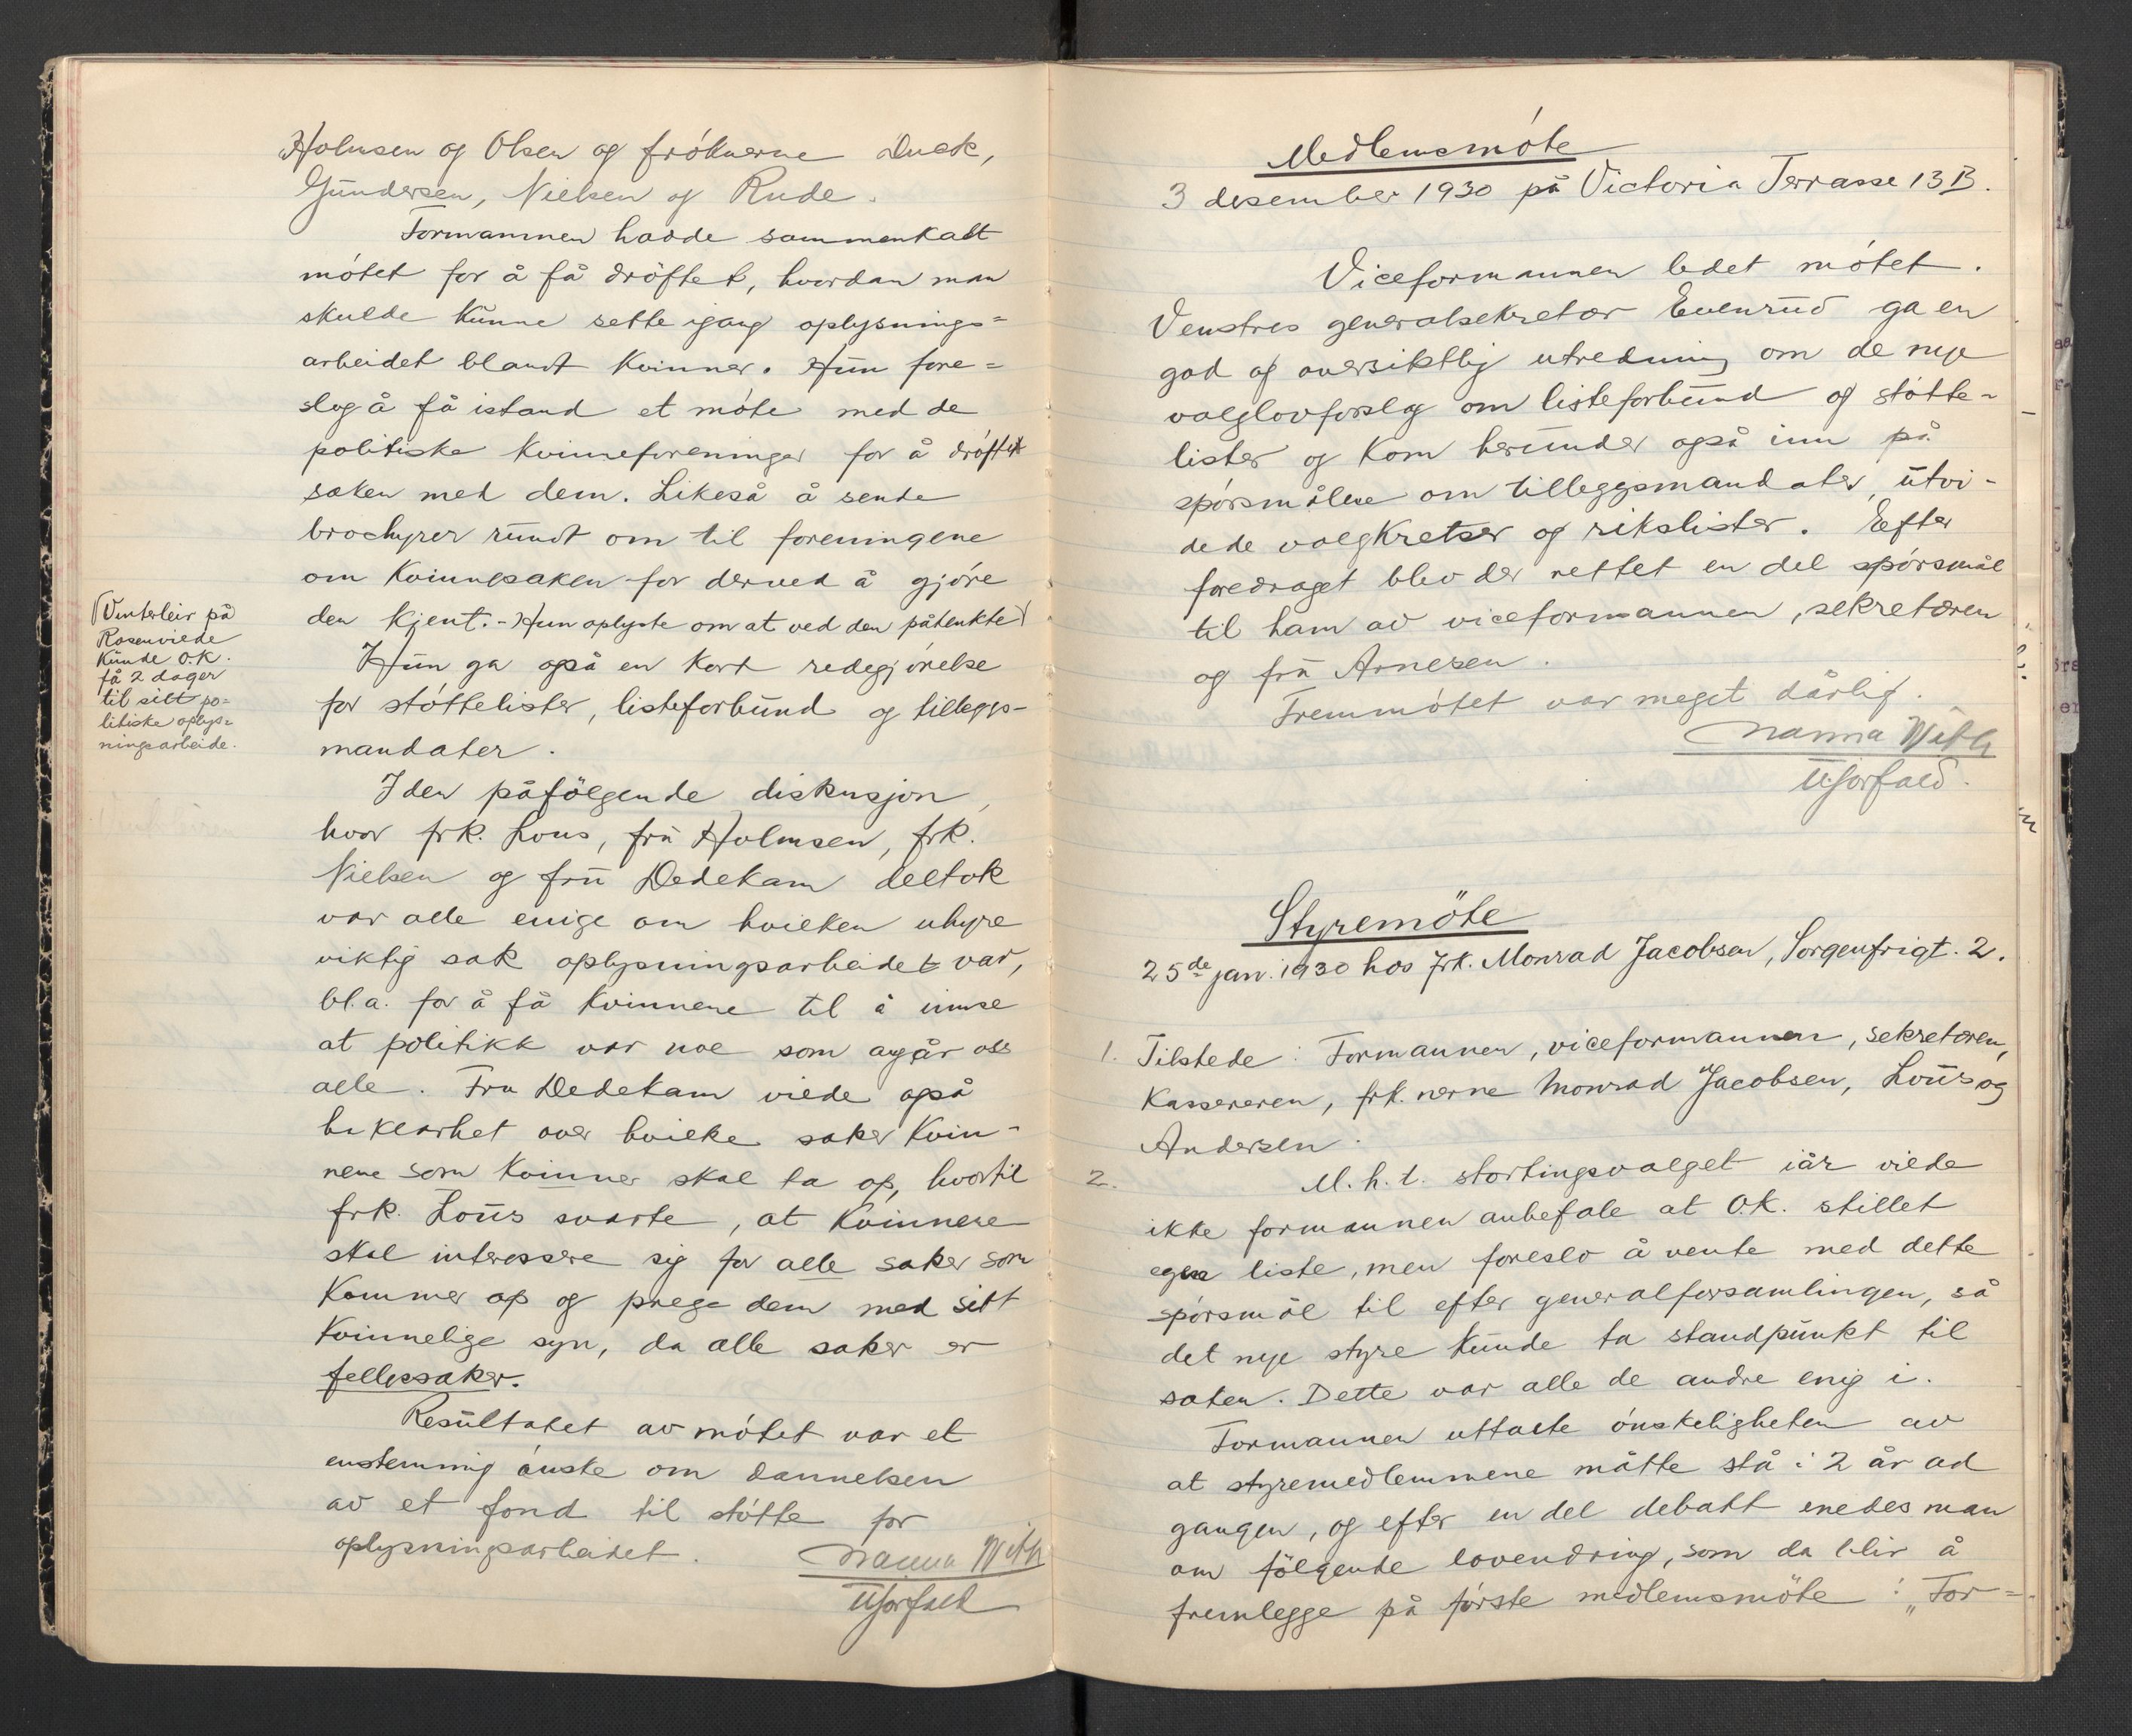 Holmsen og Olsen og frøknerne Duek,
Gundersen, Nielsen og Rude.
Formannen hadde sammenkalt
møtet for å få drøftet, hvordan man
skulde kunne sette igang oplysnings=
arbeidet blandt kvinner. Hun fore=
slog å få istand et møte med de
politiske kvinneforeninger for å drøftet
saken med dem. Likeså å sende
brochyrer rundt om til foreningene
om kvinnesaken for derved å gjøre
den kjent. - Hun oplyste om at ved den påtenkte
Vinterleir på
Rosenvilde
kunde O.K.
få 2 dager
til sitt po=
litiske oplys=
ningsarbeide.
Hun ga også en kort redegjørelse
for støttelister, listeforbund og tilleggs-
mandater.
I den påfølgende diskusjon,
hvor frk. Lous, fru Holmsen, frk.
Nielsen og fru Dedekam deltok
var alle enige om hvilken uhyre
viktig sak oplysningsarbeidet var,
bl.a. for å få kvinnene til å innse
at politikk var noe som angår oss
alle. Fru Dedekam vilde også
ha klarhet over hvilke saker kvin-
nene som kvinner skal ta op, hvortil
frk. Lous svarte, at kvinnene
skal interessere sig for alle saker som
kommer op og prege dem med sitt
kvinnelige syn, da alle saker er
fellessaker.
Resultatet av møtet var et
enstemmig ønske om dannelsen
av et fond til støtte for
oplysningsarbeidet.
Nanna With
Medlemsmøte
3 desember 1930 på Victoria Terrasse 13B.
Viceformannen ledet møtet.
Venstres generalsekretær Evenrud ga en
god og oversiktlig utredning om de nye
valglovforslag om listeforbund og støtte-
lister og kom herunder også inn på
spørsmålene om tilleggsmandater, utvi-
dede valgkretser og rikslister. Efter
foredraget blev der rettet en del spørsmål
til ham av viceformannen, sekretæren
og fru Arnesen.
Fremmøtet var meget dårlig.
Nanna With
Styremöte
25de jan. 1930 hos frk. Monrad Jacobsen, Sorgenfrigt. 2.
1. Tilstede: Formannen, viceformannen, sekretæren,
kassereren, frk.nerne Monrad Jacobsen, Lous og
Andersen.
2. M.h.t. stortingsvalget iår vilde
ikke formannen anbefale at O.K. stillet
egne liste, men foreslo å vente med dette
spørsmål til efter generalforsamlingen, så
det nye styre kunde ta standpunkt til
saken. Dette var alle de andre enig i.
Formannen uttalte ønskeligheten av
at styremedlemmene måtte stå i 2 år ad
gangen, og efter en del debatt enedes man
om følgende lovendring, som da blir å
fremlegge på første medlemsmöte: "For=